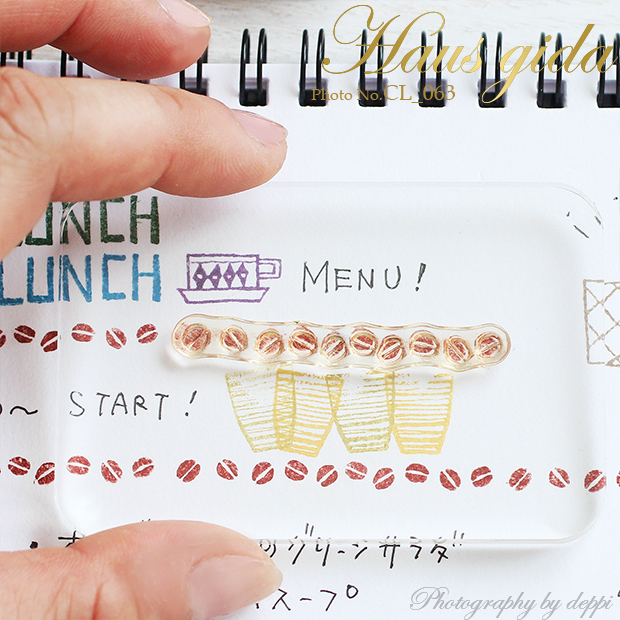 Haus gida
Photo No.CL_063
LUNCH
LUNCH
MENU!
START!
のグリーンサラダ
スープ
Photography by deppi